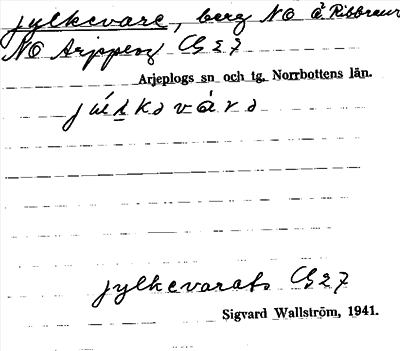 jylkevare, berg NO å Ribbraur
NO Arjeplog G 27
Arjeplogs sn och tg, Norrbottens län.
jylkevarats G 27
Sigvard Wallström, 1941.